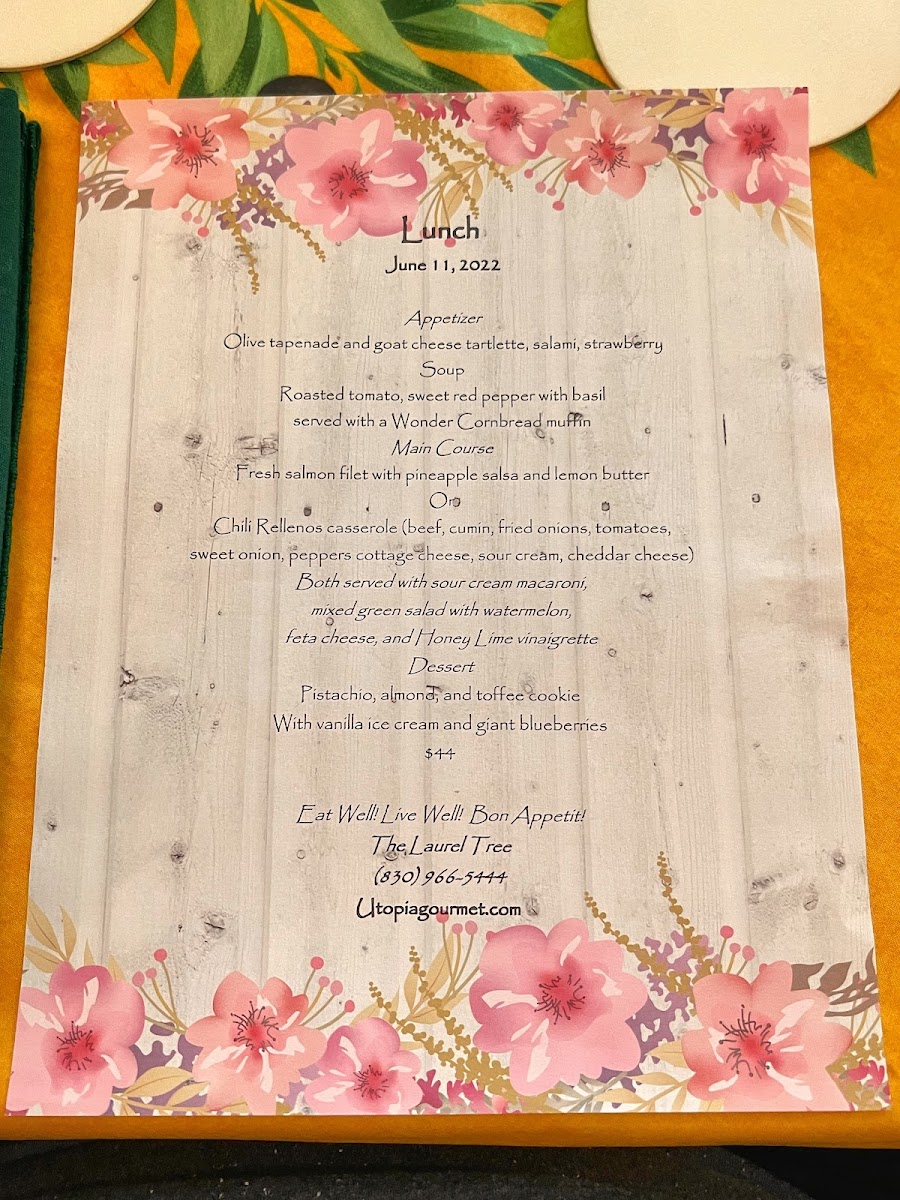 Lunch
June 11, 2022
Appetizer
Olive tapenade and goat cheese tartlette, salami, strawberry
Soup
Roasted tomato, sweet red pepper with basil
served with a Wonder Cornbread muffin
Main Course
Fresh salmon filet with pineapple salsa and lemon butter
Or
Chili Rellenos casserole (beef, cumin, fried onions, tomatoes,
sweet onion, peppers cottage cheese, sour cream, cheddar cheese)
Both served with sour cream macaroni,
mixed green salad with watermelon,
feta cheese, and Honey Lime vinaigrette
Dessert
Pistachio, almond, and toffee cookie
With vanilla ice cream and giant blueberries
$44
Eat Well! Live Well! Bon Appetit!
The Laurel Tree
(830) 966-5444
Utopiagourmet.com